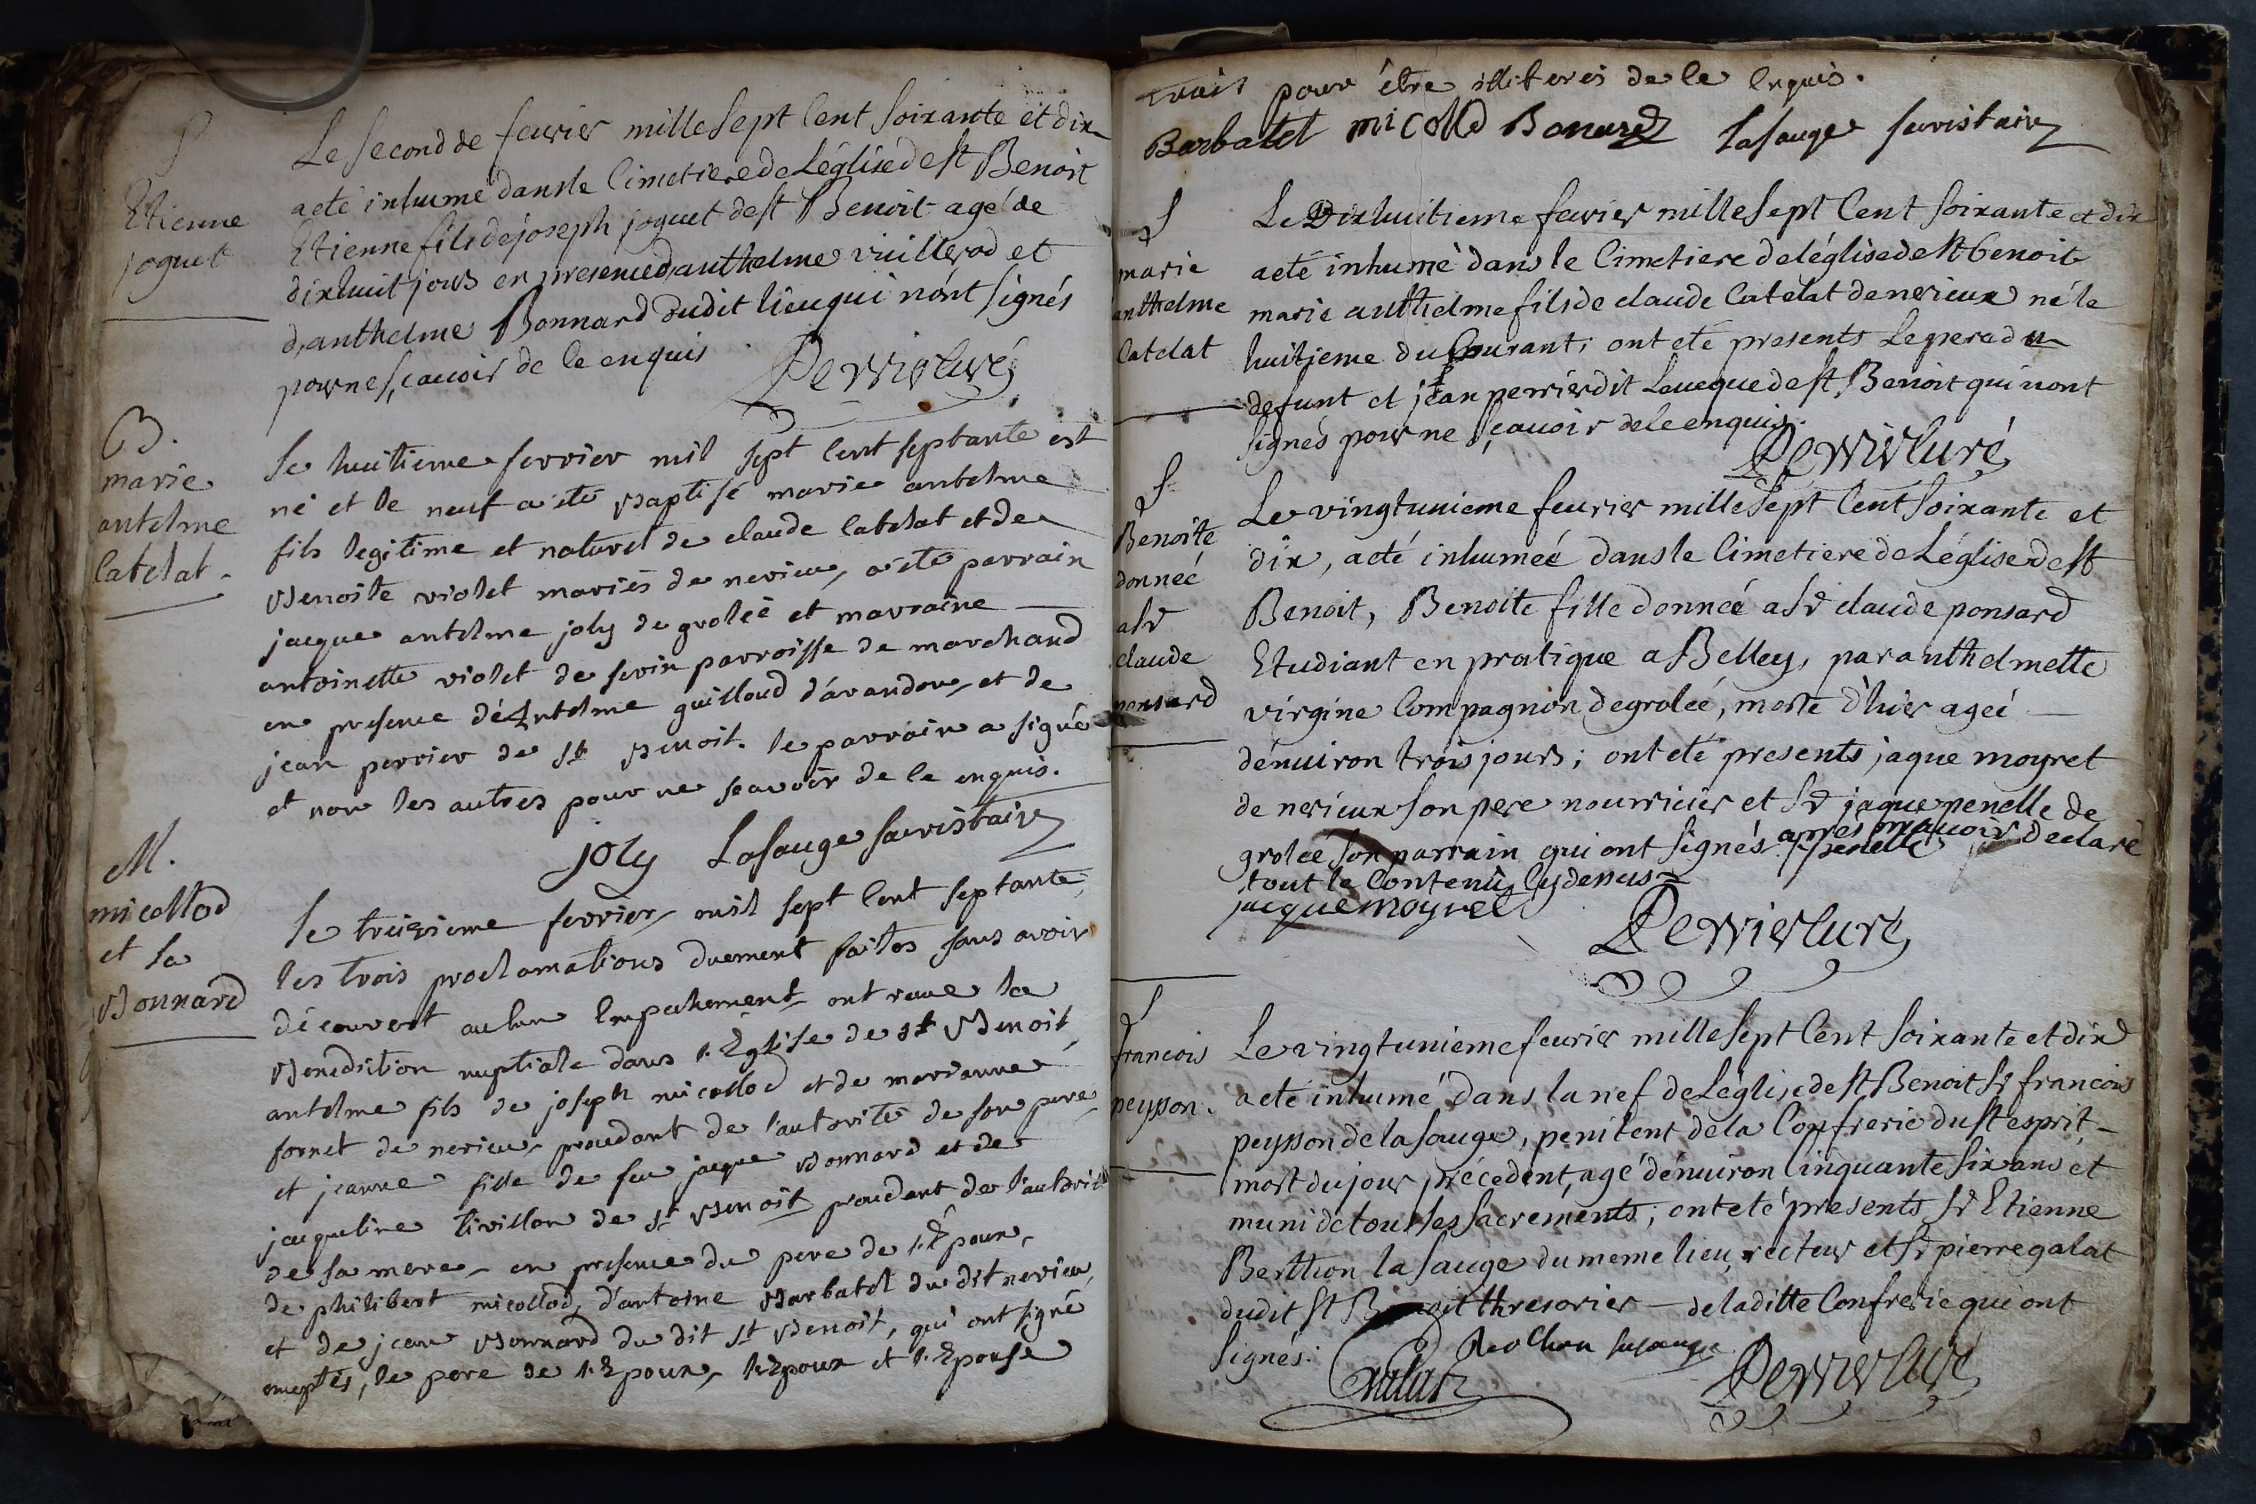 S
Etienne
joguet
Le second de feurier mille sept Cent soixante et dix
a eté inhumé dans le Cimetiere de Léglise de st Benoit
Etienne fils de joseph joguet de st Benoit agé de
dixhuit jours en presence d'anthelme vuillerod et
d'anthelme Bonnard dudit lieu qui n'ont signés
pour ne sçauoir de ce enquis.
Perrier curé
B.
marie
antelme
Catelat.
Le huitieme fevrier mil sept Cent septante est
né et le neuf a ete Baptisé marie antelme
fils legitime et naturel de claude Catelat et de
Benoite violet mariés de nerieu, a ete parrain
jacque antelme joly de grolée et marraine
antoinette violet de serin parroisse de marchand
en presence de Antelme guilloud d'avandon, et de
jean perrier de st Benoit. le parrain a signé
et non les autres pour ne scavoir de ce enquis.
joly Lasauge sacristain
M.
micollod
et la
Bonnard
Le treizieme fevrier mil sept Cent septante,
les trois proclamations duement faites sans avoir
découvert aucun Empechement ont reçue la
Benediction nuptiale dans l'Eglise de st Benoit,
antelme fils de joseph micollod et de marianne
fornet de nerieu, procedant de l'autorité de son pere
et jeanne fille de feu jacque Bonnard et de
jacqueline tivillon de st Benoit procedant de l'autorité
de sa mere, en presence du pere de l'Epoux,
de philibert micollod, d'antoine Barbatel du dit nerieu
et de jean Bonnard du dit st Benoit, qui ont signé
exceptés, le pere de l'Epoux, l'Epoux et l'Epouse
pour être illiterés de ce Enquis.
Barbatel micollod Bonard Lasauge sacristain
S
marie
anthelme
Catelat
Le Dixhuitieme feurier mille sept Cent soixante et dix
a eté inhumé dans le Cimetiere de léglise de st benoit
marie anthelme fils de claude Catelat de nerieux né le
huitieme du Courant; ont eté presents Le pere du
defunt et jean perrier dit Leueque de st Benoit qui nont
signés pour ne sçauoir de ce enquis.
Perrier curé
S
Benoite
donneé
a Sr
claude
ponsard
Le vingtunieme feurier mille sept Cent soixante et
dix, a eté inhumeé dans le Cimetiere de Léglise de st
Benoit, Benoite fille donneé a Sr claude ponsard
Etudiant en pratique a Belley, par anthelmette
virgine Compagnion de groleé, morte d'hier ageé
dénuiron trois jours; ont eté presents jaque moyret
de nerieux son pere nourricier et Sr jaque penelle de
grolée son parrain qui ont signés apres m'auoir declaré
tout le Contenu Cy dessus
penelle
jacque moyret
Perrier curé
S
francois
peysson.
Le vingtunieme feurier mille sept Cent soixante et dix
a eté inhumé dans la nef de Léglise de st Benoit Sr francois
peysson de la sauge, penitent de la Confrerie du st esprit
mort du jour précedent, agé dénuiron Cinquante six ans et
muni de tous les sacrements; ont eté présents Sr Etienne
Berthon la sauge du meme lieu, recteur et Sr pierre galat
dudit St Benoit thresorier de la ditte Confrerie qui ont
signés.
lasauge
Galat
Perrier curé